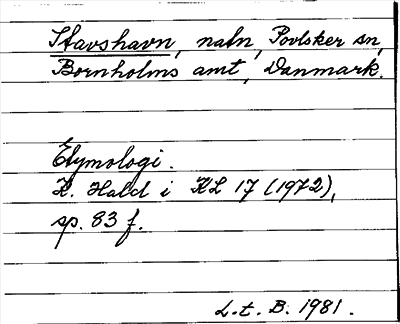 Stavshavn, natn, Povlsker sn,
Bornholms amt, Danmark.
Etymologi.
K. Hald i KL 17 (1972),
sp. 83 f.
L.t.B. 1981.